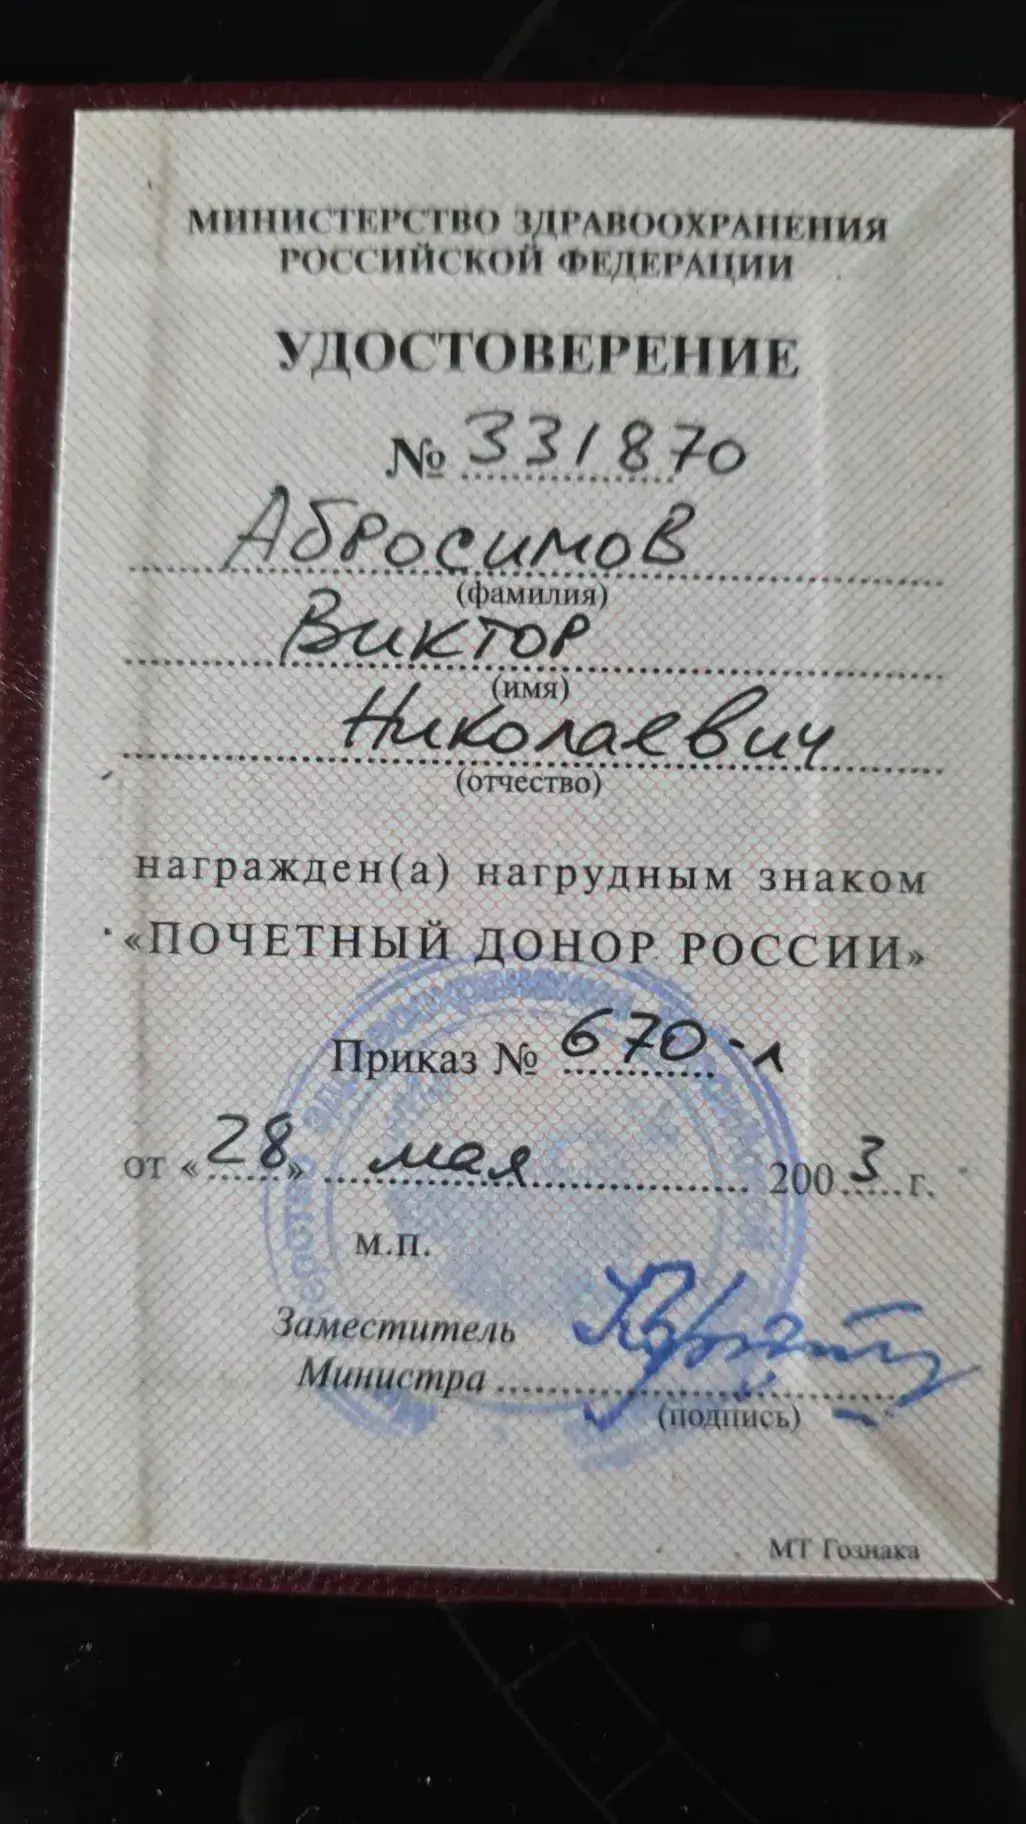 МИНИСТЕРСТВО ЗДРАВООХРАНЕНИЯ
РОССИЙСКОЙ ФЕДЕРАЦИИ
УДОСТОВЕРЕНИЕ
№ 331870
Абросимов
(фамилия)
Виктор
(имя)
Николаевич
(отчество)
награжден(а) нагрудным знаком
«ПОЧЕТНЫЙ ДОНОР РОССИИ»
Приказ № 670-л
от «28» мая 2003 г.
м.п.
Заместитель
Министра
(подпись)
МТ Гознака